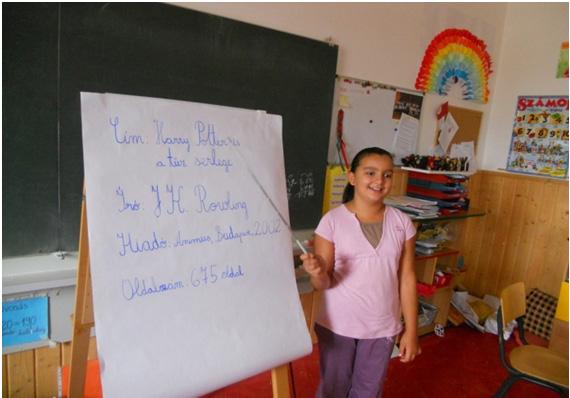 Cím: Harry Potter és
a tűz serlege
Író: J. K. Rowling
Kiadó: Animus, Budapest, 2002
Oldalszám: 675 oldal
SZÁMO